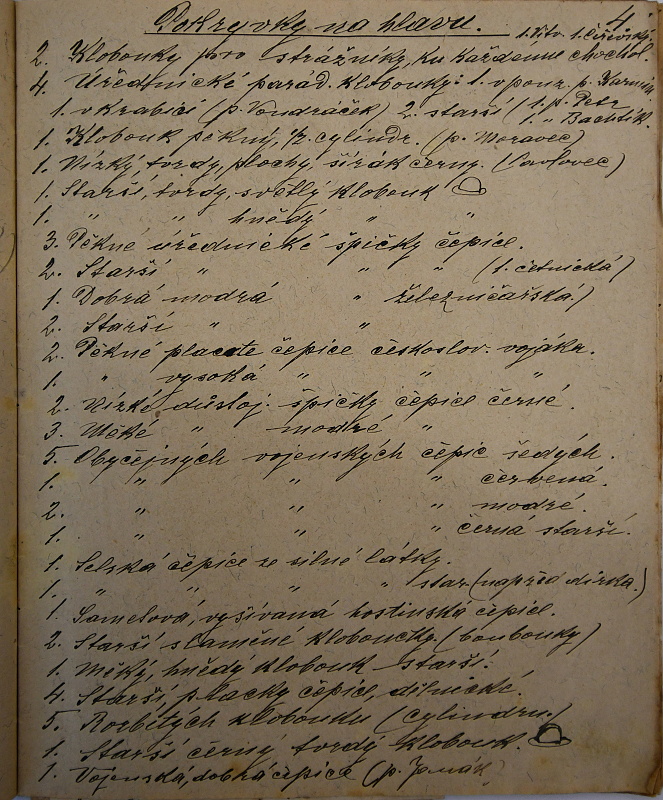 Pokryvky na hlavu.
4.
2. Klobouky pro strážníky, ku každému chochol.
4. Úřednické parád. klobouky: 1. v pouz. p.
1. v krabici (p. Vondráček) 2. starší (1. p. Petr
1. " Bachtík.
1. Klobouk pěkný, 1/2. cylindr. (p. Moravec)
1. Nízký, tvrdý, plochý, širák černý. (Pavlovec)
1. Starší, tvrdý, světlý klobouk
1. " " hnědý " "
3. Pěkné úřednické špičky čepice.
2. Starší " " " (1. četnická)
1. Dobrá modrá " železničářská)
2. Starší " "
2. Pěkné placaté čepice českoslov. vojáka.
1. " vysoká " " "
2. Nízké důstoj. špičky čepice černé.
3. Měké " modré "
5. Obyčejných vojenských čepic šedých.
1. " " " červená.
2. " " " modré.
1. " " " černá starší.
1. Selská čepice ze silné látky.
1. " " " " star. (napřed dírka.)
1. Sametová, vyšívaná hostinská čepice.
2. Starší slaměné kloboučky. (boubouky)
1. Měký, hnědý klobouk starší.
4. Starší, placky čepice, dělnické.
5. Rozbitých klobouku (cylindru.)
1. Starší černý tvrdý klobouk.
1. Vojenská, dobrá čepice (p.